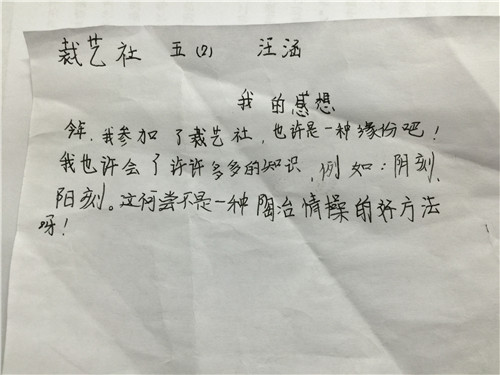 裁艺社 五(2) 汪涵
我的感想
今年,我参加了裁艺社,也许是一种缘份吧!
我也许会了许许多多的知识,例如:阴刻、
阳刻。这何尝不是一种陶冶情操的好方法
呀!